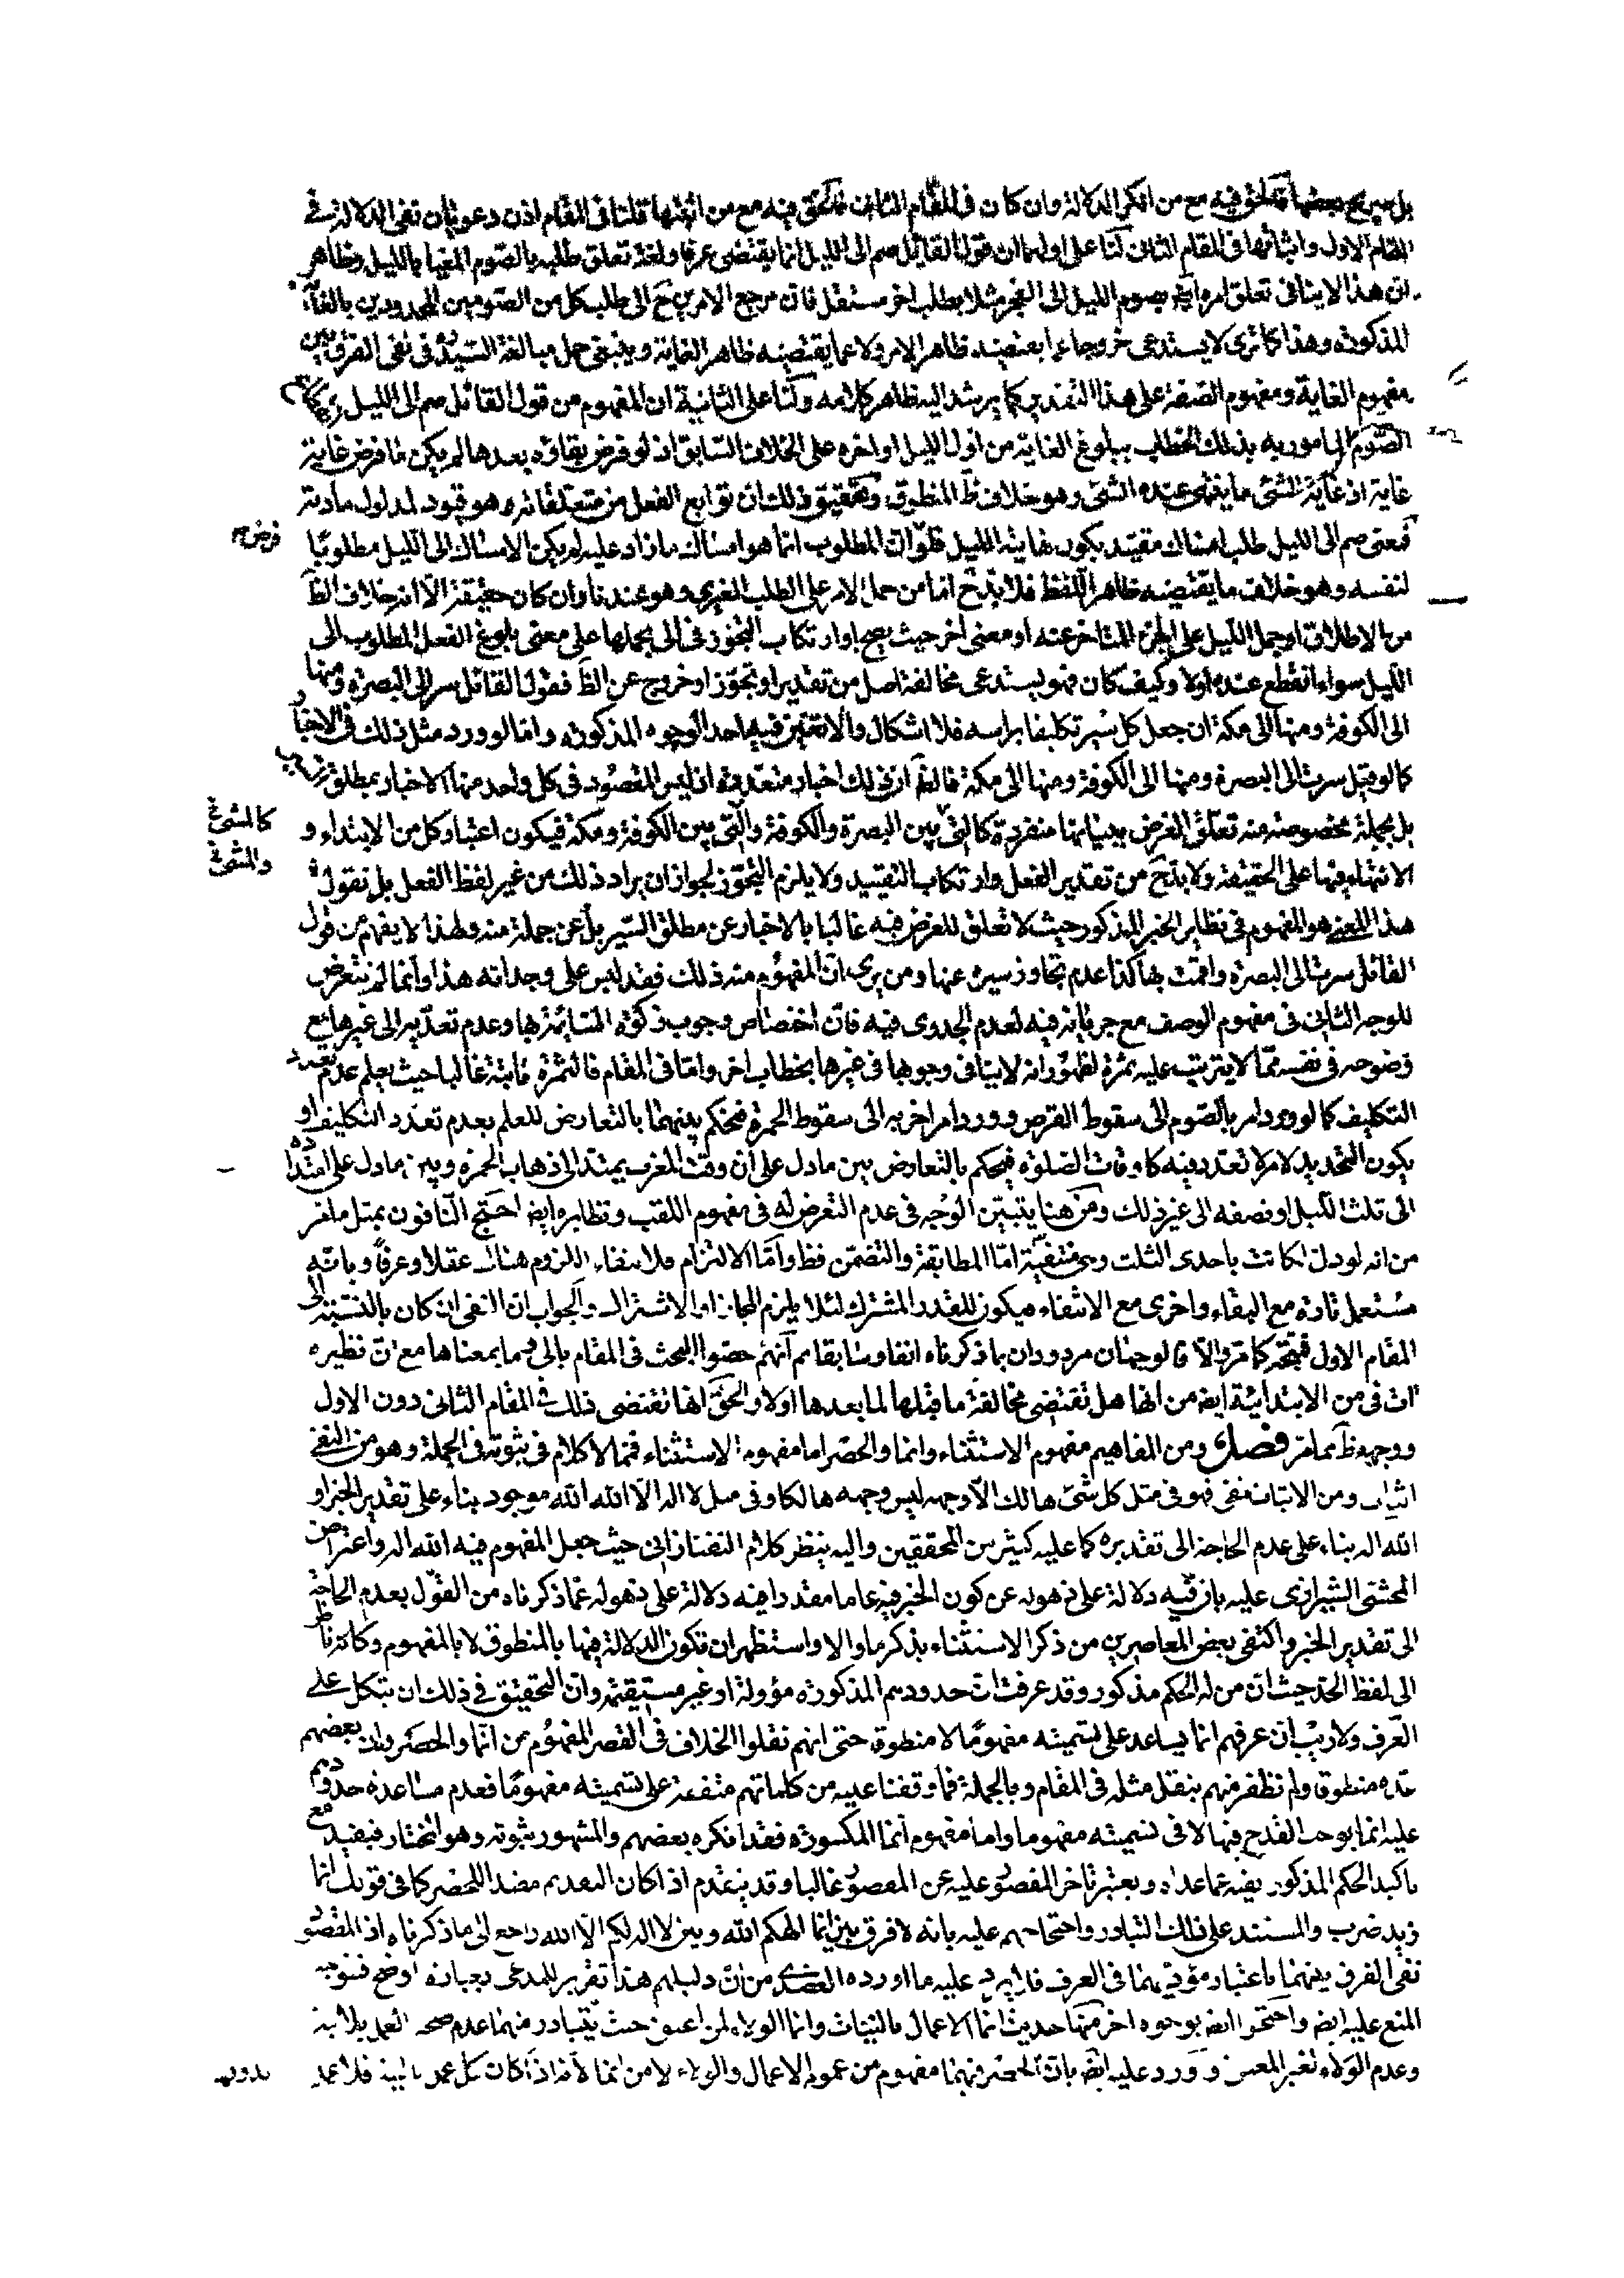 بل صريح بعضها فالحق فيه مع من انكر الدلالة وان كان فى المقام الثانى فالحق فيه مع من اثبتها فلنا فى المقام اذن دعويان نفى الدلالة فى
المقام الاول واثباتها فى المقام الثانى لنا على اوليهما ان قول القائل صم الى الليل انما يقتضى عرفا ولغة تعلق طلبه بالصوم المغيا بالليل وظاهر
ان هذا لا ينافى تعلق امره ايضا بصوم الليل الى الفجر مثلا بطلب اخر مستقل فان مرجع الامرين ح الى طلب كل من الصومين المحدودين بالغاية
المذكورة وهذا كما ترى لا يستدعى خروجا عما يقتضيه ظاهر الامر ولا عما يقتضيه ظاهر الغاية وينبغى حمل مبالغة السيد فى نفى الفرق بين
مفهوم الغاية ومفهوم الصفة على هذا التقدير كما يرشد اليه ظاهر كلامه ولنا على الثانية ان المفهوم من قول القائل صم الى الليل
الصوم المامور به بذلك الخطاب ببلوغ الغاية من اول الليل او اخره على الخلاف السابق اذ لو فرض بقاؤه بعدها لم يكن ما فرض غاية
غاية اذ غاية الشئ ما ينتهى عنده الشئ وهو خلاف ظ المنطوق وتحقيق ذلك ان توابع الفعل من متعلقاته وهو قيود لمدلول مادته
فمعنى صم الى الليل طلب امساك مقيد بكون نهايته الليل فلو ان المطلوب انما هو امساك ما زاد عليه لم يكن الامساك الى الليل مطلوبا
فرض م
لنفسه وهو خلاف ما يقتضيه ظاهر اللفظ فلا بد ح اما من حمل الامر على الطلب الغيرى وهو عندنا وان كان حقيقة الا انه خلاف الظ
من الاطلاق او حمل الليل على الجزء المتاخر عنه او معنى اخر حيث يصح او ارتكاب التجوز فى الى بحملها على معنى بلوغ الفعل المطلوب الى
الليل سواء انقطع عنده او لا وكيف كان فهو يستدعى مخالفة اصل من تقدير او تجوز او خروج عن الظ فقول القائل سر الى البصرة ومنها
الى الكوفة ومنها الى مكة ان جعل كل سير تكليفا براسه فلا اشكال والا تعين فيه احد الوجوه المذكورة واما لو ورد مثل ذلك فى الاخبار
كما لو قيل سرت الى البصرة ومنها الى الكوفة ومنها الى مكة فالظ ان ذلك اخبار متعددة اذ ليس المقصود فى كل واحد منها الاخبار بمطلق
بل بجملة مخصوصة منه تعلق الغرض ببيانها منفردة كالتى بين البصرة والكوفة والتى بين الكوفة ومكة فيكون اعتبار كل من الابتداء و
كالمشى خ
والمشى خ
الانتهاء فيها على الحقيقة ولا بد ح من تقدير الفعل وارتكاب التقييد ولا يلزم التجوز لجواز ان يراد ذلك من غير لفظ الفعل بل نقول
هذا المعنى هو المفهوم فى نظاير الخبر المذكور حيث لا تعلق للغرض فيه غالبا بالاخبار عن مطلق السير بل عن جملة منه ولهذا لا يفهم من قول
القائل سرت الى البصرة واقمت بها كذا عدم تجاوز سيره عنها ومن يرى ان المفهوم منه ذلك فقد لبس على وجدانه هذا وانما لم نتعرض
للوجه الثانى فى مفهوم الوصف مع جريانه فيه لعدم الجدوى فيه فان اختصاص وجوب زكوة السائمة بها وعدم تعديه الى غيرها مع
وضوحه فى نفسه مما لا يترتب عليه ثمرة لظهور انه لا ينافى وجوبها فى غيرها بخطاب اخر واما فى المقام فالثمرة ثابتة غالبا حيث يعلم عدم تعدد
التكليف كما لو ورد امر بالصوم الى سقوط القرص وورد امر اخر به الى سقوط الحمرة فيحكم بينهما بالتعارض للعلم بعدم تعدد التكليف او
يكون التحديد لامر لا تعدد فيه كاوقات الصلوة فيحكم بالتعارض بين ما دل على ان وقت المغرب يمتد الى ذهاب الحمرة وبين ما دل على امتداده
الى ثلث الليل او نصفه الى غير ذلك ومن هنا يتبين الوجه فى عدم التعرض له فى مفهوم اللقب ونظايره ايض احتج النافون بمثل ما مر
من انه لو دل لكانت باحدى الثلث وهى منتفية اما المطابقة والتضمن فظ واما الالتزام فلانتفاء اللزوم هناك عقلا وعرفا وبانه
مستعمل تارة مع البقاء واخرى مع الانتفاء فيكون للقدر المشترك لئلا يلزم المجاز او الاشتراك والجواب ان النفى ان كان بالنسبة الى
المقام الاول فمتجه كما مر والا فالوجهان مردودان بما ذكرناه انفا وسابقا ثم انهم خصوا البحث فى المقام بالى وما بمعناها مع ان نظيره
ات فى من الابتدائية ايض من انها هل تقتضى مخالفة ما قبلها لما بعدها او لا والحق انها تقتضى ذلك فى المقام الثانى دون الاول
ووجهه ظ مما مر فصل ومن المفاهيم مفهوم الاستثناء وانما والحصر اما مفهوم الاستثناء فمما لا كلام فى ثبوته فى الجملة وهو من النفى
اثبات ومن الاثبات نفى فهو فى مثل كل شئ هالك الا وجهه ليس وجهه هالكا وفى مثل لا اله الا الله الله موجود بناء على تقدير الخبر او
الله اله بناء على عدم الحاجة الى تقديره كما عليه كثير من المحققين واليه ينظر كلام التفتازانى حيث جعل المفهوم فيه الله اله واعتراض
المحشى الشيرازى عليه بان فيه دلالة على ذهوله عن كون الخبر فيه عاما مقدرا فيه دلالة على ذهوله عما ذكرناه من القول بعدم الحاجة
الى تقدير الخبر واكتفى بعض المعاصرين من ذكر الاستثناء بذكر ما والا واستظهر ان تكون الدلالة فيها بالمنطوق لا بالمفهوم وكانه ناظر
الى لفظ الحد حيث ان من له الحكم مذكور وقد عرفت ان حدودهم المذكورة مؤولة او غير مستقيمة وان التحقيق فى ذلك ان يتكل على
العرف ولا ريب ان عرفهم انما يساعد على تسميته مفهوما لا منطوقا حتى انهم نقلوا الخلاف فى القصر المفهوم من انما والحصر وان بعضهم
عده منطوقا ولم نظفر منهم بنقل مثله فى المقام وبالجملة فما وقفنا عليه من كلماتهم متفقة على تسميته مفهوما فعدم مساعدة حدودهم
عليه انما يوجب القدح فيها لا فى تسميته مفهوما واما مفهوم انما المكسورة فقد انكره بعضهم والمشهور ثبوته وهو المختار فيفيد مع
تاكيد الحكم المذكور نفيه عما عداه ويعتبر تاخر المقصور عليه عن المقصور غالبا وقد يتقدم اذا كان التقديم مفيدا للحصر كما فى قولك انما
زيد ضرب والمستند على ذلك التبادر واحتجاجهم عليه بانه لا فرق بين انما الهكم الله وبين لا اله لكم الا الله راجع الى ما ذكرناه اذ المقصود
نفى الفرق بينهما باعتبار مؤديهما فى العرف فلا يرد عليه ما اورده العضدى من ان دليلهم هذا تقرير للمدعى بعبارة اوضح فتوجه
المنع عليه ايض واحتجوا ايض بوجوه اخر منها حديث انما الاعمال بالنيات وانما الولاء لمن اعتق حيث يتبادر منهما عدم صحة العمل بلا نية
وعدم الولاء لغير المعتق واورد عليه ايض بان الحصر فيهما مفهوم من عموم الاعمال والولاء لا من انما لانه اذا كان كل عمل بالنية فلا عمل
بدونها